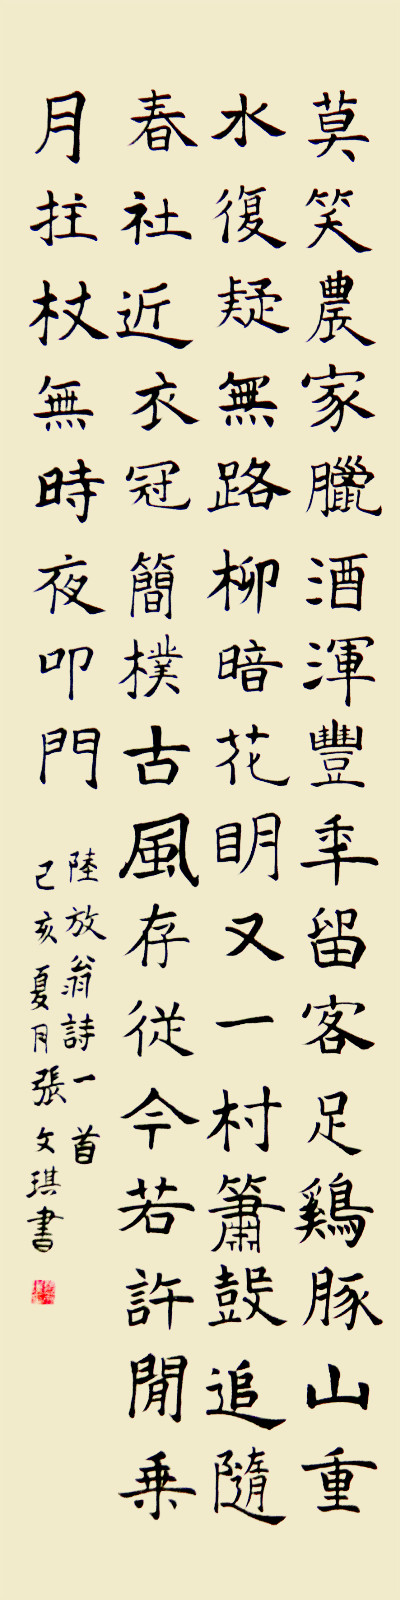 莫笑農家臘酒渾豐年留客足鷄豚山重
水復疑無路柳暗花明又一村簫鼓追隨
春社近衣冠簡樸古風存從今若許閒乘
月拄杖無時夜叩門
陸放翁詩一首
己亥夏月張文琪書